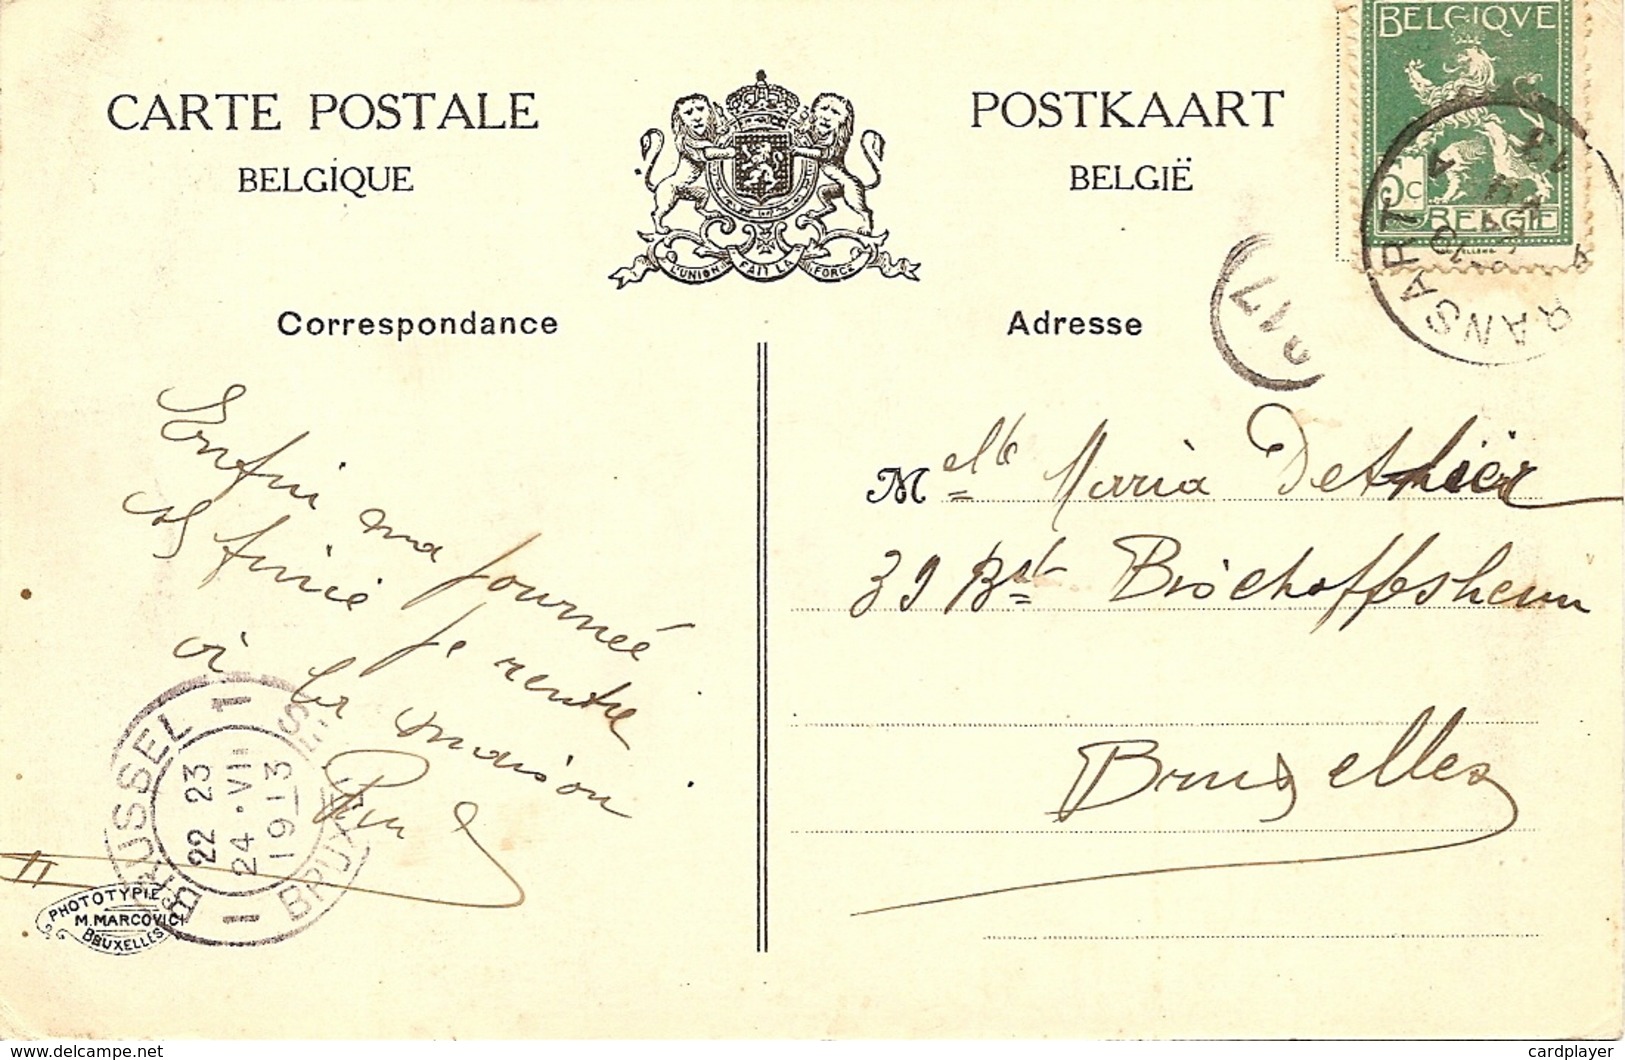 CARTE POSTALE
BELGIQUE
POSTKAART
BELGIË
L'UNION FAIT LA FORCE
BELGIQVE
5c
BELGIE
RANSART
13
Correspondance
Adresse
217
Enfin ma journée
est finie je rentre
à la maison
Melle Maria Dethier
39 Bd Bischoffsheim
Bruxelles
BRUSSEL 1
22 23
24 • VII
1913
BRUXELLES
PHOTOTYPIE
M. MARCOVICI
BRUXELLES
www.delcampe.net
cardplayer